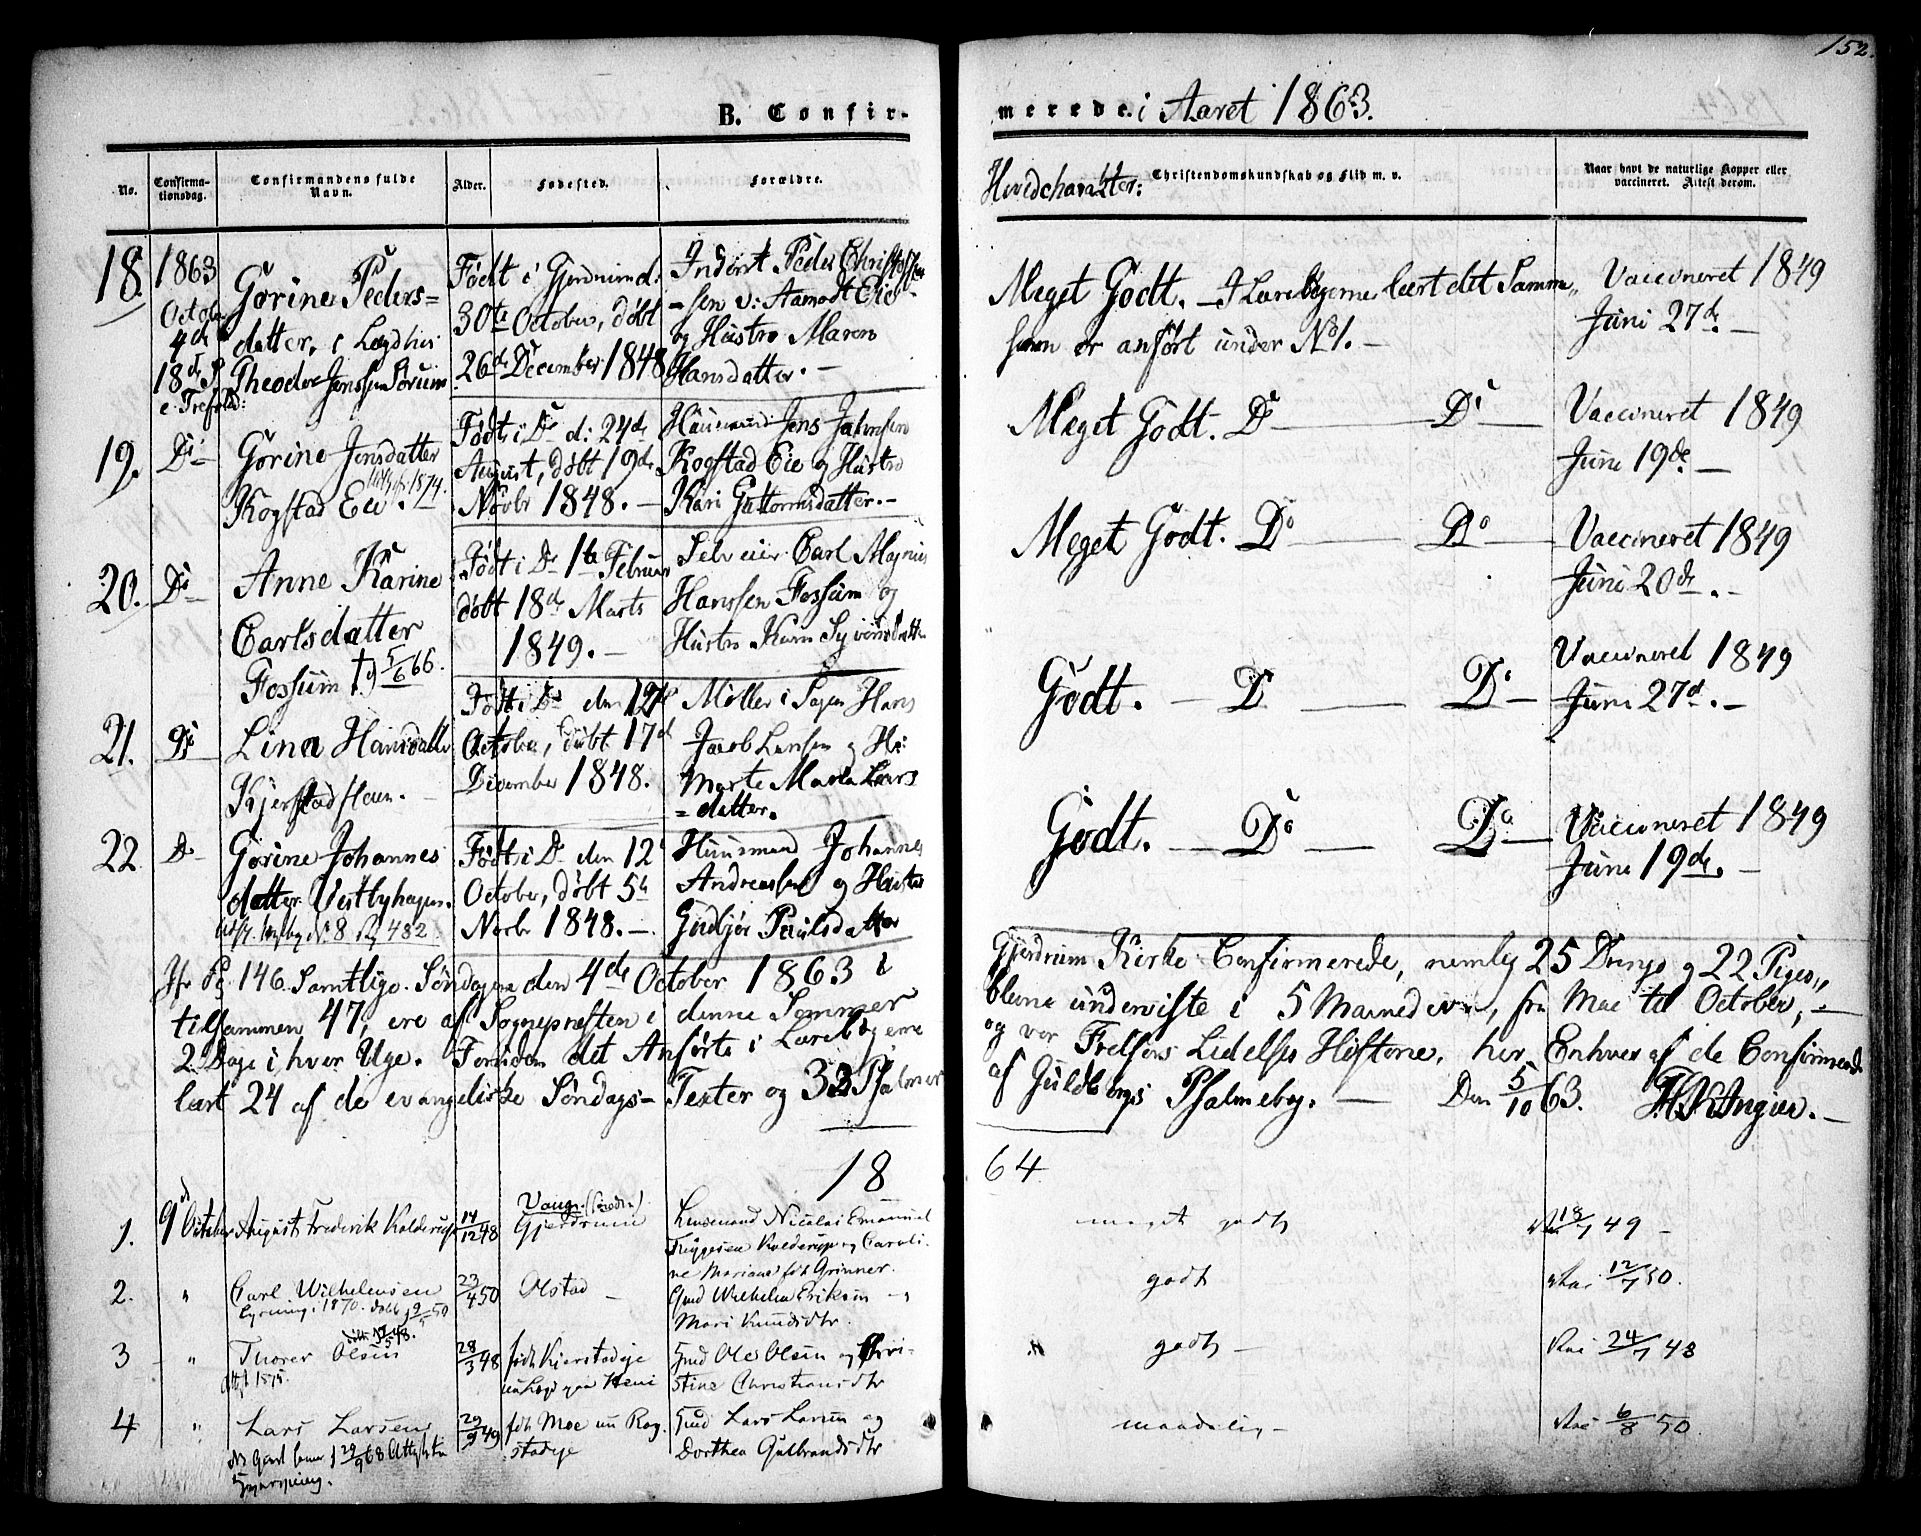 152.
B. Confirmerede i Aaret 1863.
No.
Confirmationsdag.
Confirmandens fulde Navn.
Alder.
Fødested.
Forældre.
Hovedcharakter:
Christendomskundskab og Flid m. v.
Naar havt de naturlige Kopper eller vaccineret. Attest derom.
18.
1863
October
4de
18de S.
e. Trefold:
Gorine Peders=
datter,
Theodor Jenssen Sorum
Født i Gjerdrum d:
30te October, døbt
26de December 1848
Inderst Peder Christof
=sen v: Aamodt Eie
og Hustro Maren
Hansdatter. —
Meget Godt. — I Lærebøgerne lært det Samme,
som er anført under No 1. —
Vaccineret 1849
Juni 27de. —
19.
Do
Gorine Jensdatter
Kogstad Eie. 1874.
Født i Do d: 24de
August, døbt 19de
Novbr 1848. —
Huusmand Jens Jahnsen
Kogstad Eie og Hustro
Kari Guttormsdatter. —
Meget Godt. Do — Do —
Vaccineret 1849
Juni 19de. —
20.
Do
Anne Karine
Carlsdatter
Fossum † 5/6 66.
Født i Do 1te Februar
døbt 18de Marts
1849. —
Selveier Carl Magnus
Hanssen Fossum og
Hustro Karn
Meget Godt. Do — Do —
Vaccineret 1849
Juni 20de. —
21.
Do
Lina Hansdatter
Kjerstad
Født i Do den 12te
October, døbt 17de
December 1848.
Møller i Sagen Hans
Jacob Larsen og H:
Marte Maria Lars
=datter.
Godt. — Do — Do —
Vaccineret 1849
Juni 27de. —
22
Do
Gorine Johannes
datter Vestbyhagen.
No 8 482
Født i Do den 12te
October, døbt 5te
Novbr 1848. —
Huusmand Johannes
Andreassen og Hustro
Gudbjør Paulsdatter
Godt. — Do — Do —
Vaccineret 1849
Juni 19de. —
Jfr Pg. 146. Samtlige Søndagen den 4de October 1863 i Gjerdrum Kirke Confirmerede, nemlig 25 Drenge og 22 Piger,
tilsammen 47, ere af Sognepresten i denne Sommer blevne underviste i 5 Maaneder, fra Mai til October,
2 Dage i hver Uge. Foruden det Anførte i Lærebøgerne og vor Frelsers Lidelses Historie, har Enhver af de Confirmerede
lært 24 af de evangeliske Søndags-Texter og 33 Psalmer af Guldbergs Psalmebog. — Den 5/10 63.
1864
1.
9de October
August Frederik Kolderup
14/12 48
Vang
Gjerdrum
Lensmand Nicolai Emanuel
Tryggesen Kolderup og Caroli-
ne Mariane født Grinner.
meget godt
18/7 49 —
2.
"
Carl Wilhelmsen
1870. døbt 19/5 50
23/4 50
Olstad —
Gmd Wilhelm Eriksen
Mari Knudsdtr.
godt
Vac 12/7 50.
3
"
Thorer Olsen
1875.
28/3 48
født Kjerstadeje
Gmd Ole Olsen og Chri-
stine Christiansdtr
godt —
Vac 24/7 48
4
"
Lars Larsen
29/9 68
29/9 49
født Moe nu Rog-
stadeje
Gmd Lars Larsen og
Dorthea Gulbrandsdtr
maadelig —
Vac 6/8 50.